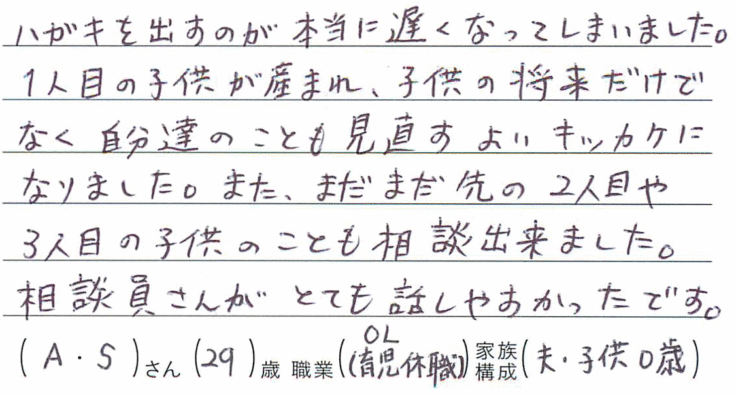 ハガキを出すのが本当に遅くなってしまいました。
1人目の子供が産まれ、子供の将来だけで
なく自分達のことも見直すよいキッカケに
なりました。また、まだまだ先の2人目や
3人目の子供のことも相談出来ました。
相談員さんがとても話しやすかったです。
(A・S)さん(29)歳 職業(OL(育児休職))家族構成(夫・子供0歳)